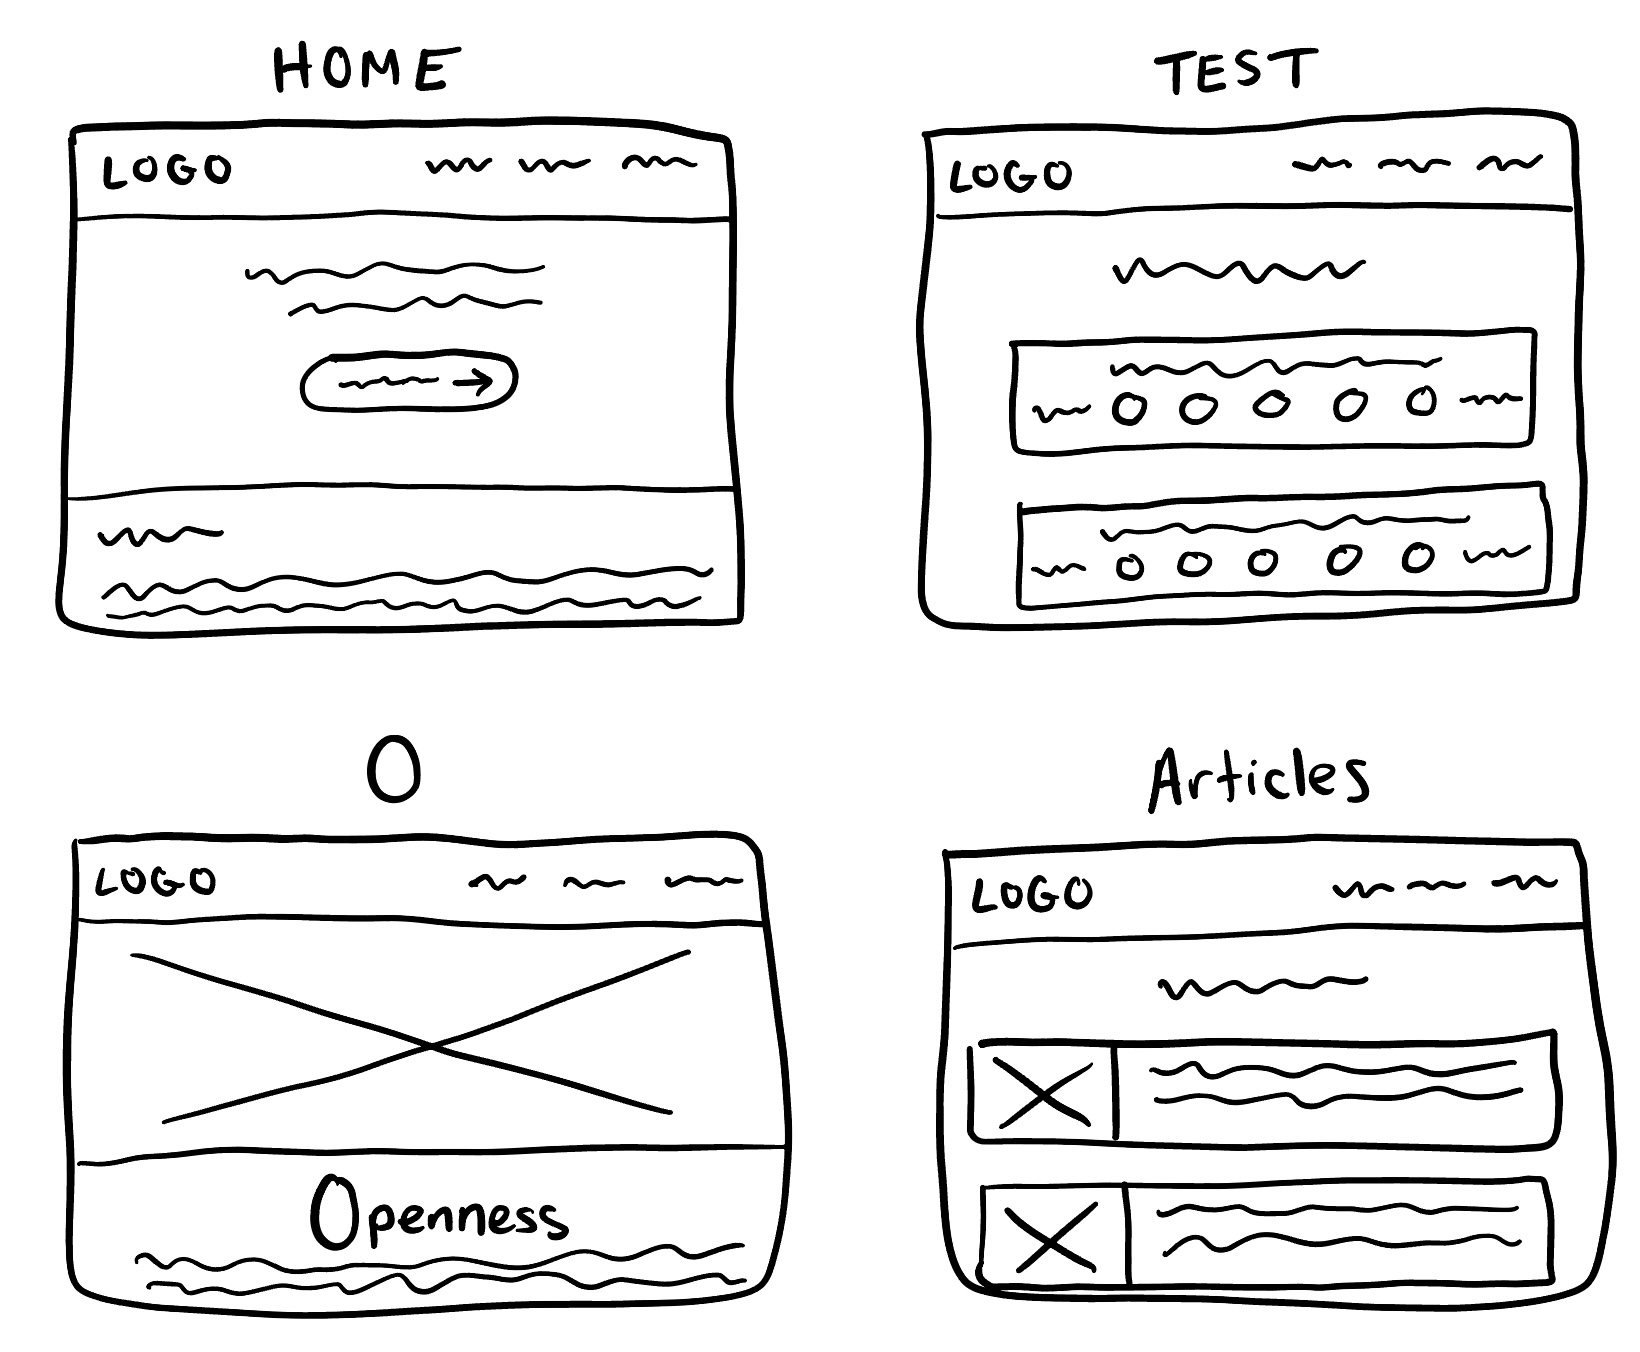 HOME
LOGO
TEST
LOGO
O
LOGO
Openness
Articles
LOGO